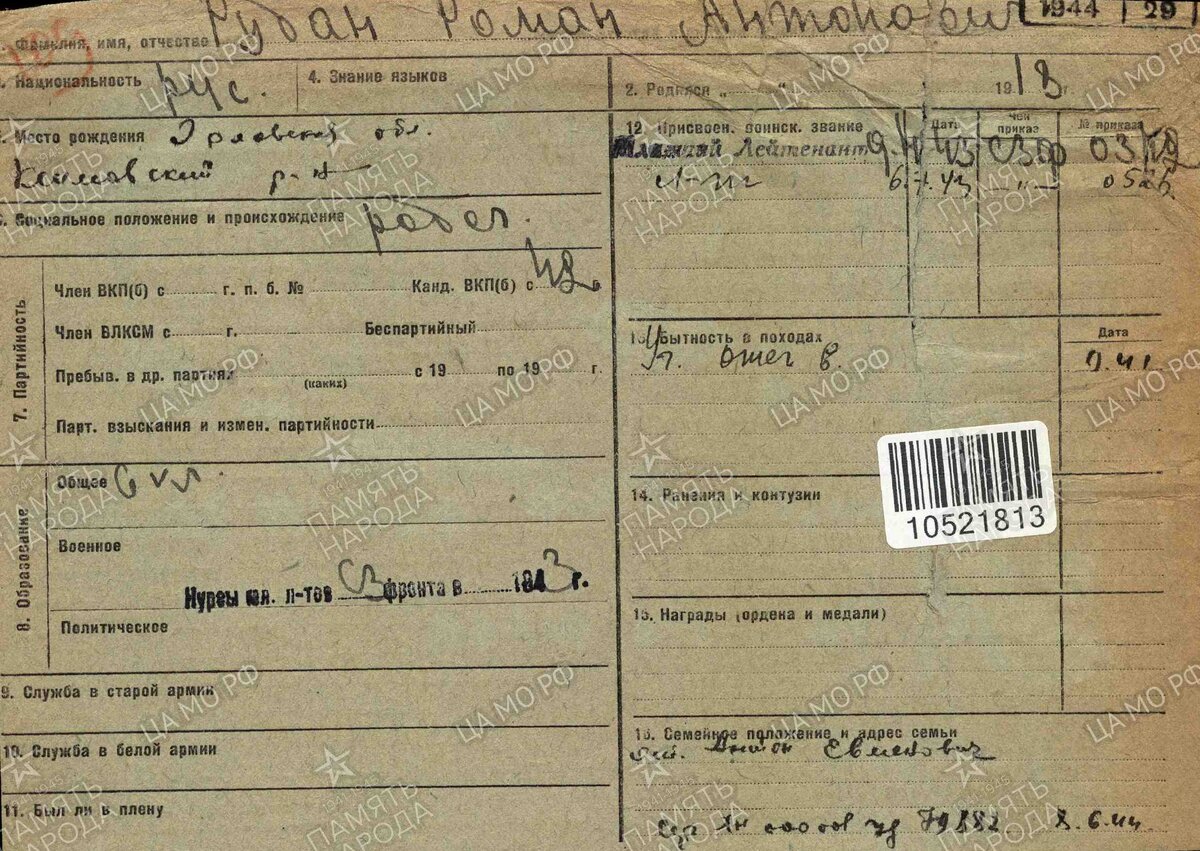 Рубан Роман Антонович
1944 | 29
1. Фамилия, имя, отчество
3. Национальность рус.
4. Знание языков
2. Родился „ “ 1918 г.
5. Место рождения Орловская обл.
Климовский р-н
6. Социальное положение и происхождение рабоч.
7. Партийность
Член ВКП(б) с г. п. б. №
Канд. ВКП(б) с 42
Член ВЛКСМ с г.
Беспартийный
Пребыв. в др. партиях (каких) с 19 по 19 г.
Парт. взыскания и измен. партийности
8. Образование
Общее 6 кл.
Военное
Курсы мл. л-тов СЗ фронта в 1943 г.
Политическое
9. Служба в старой армии
10. Служба в белой армии
11. Был ли в плену
12. Присвоен. воинск. звание
Дата
Чей приказ
№ приказа
Младший Лейтенант 43 СЗФ
Л-нт 43 —"—
13. Бытность в походах
Дата
Уч. отеч в. 41
14. Ранения и контузии
10521813
15. Награды (ордена и медали)
16. Семейное положение и адрес семьи
Антон Евменович
79882 8.6.44
ЦАМО РФ
ПАМЯТЬ НАРОДА
1941-1945